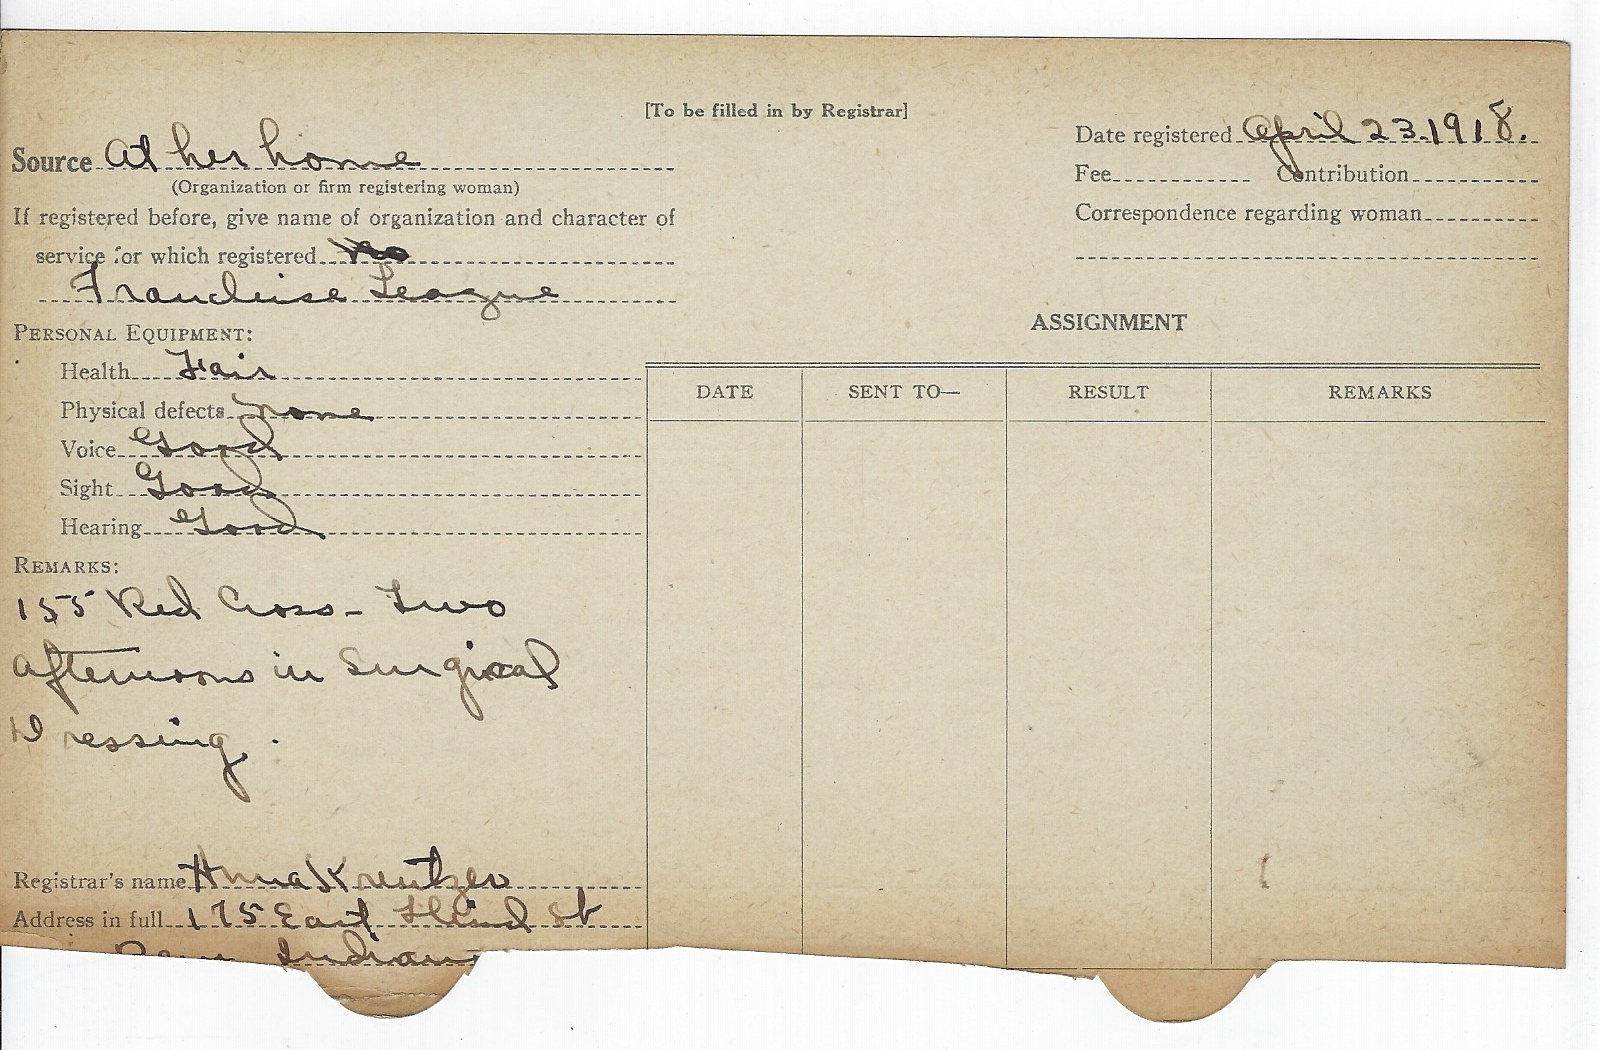 [To be filled in by Registrar]
Date registered April 23.1918.
Source At her home
(Organization or firm registering woman)
Fee Contribution
If registered before, give name of organization and character of
Correspondence regarding woman
service for which registered no
Franchise League
PERSONAL EQUIPMENT:
ASSIGNMENT
Health Fair
DATE SENT TO— RESULT REMARKS
Physical defects none
Voice Good
Sight Good
Hearing Good
REMARKS:
155 Red Cross - Two
afternoons in Surgical
Dressing.
Registrar's name Anna Kreutzer
Address in full 175 East Third St
Peru Indiana